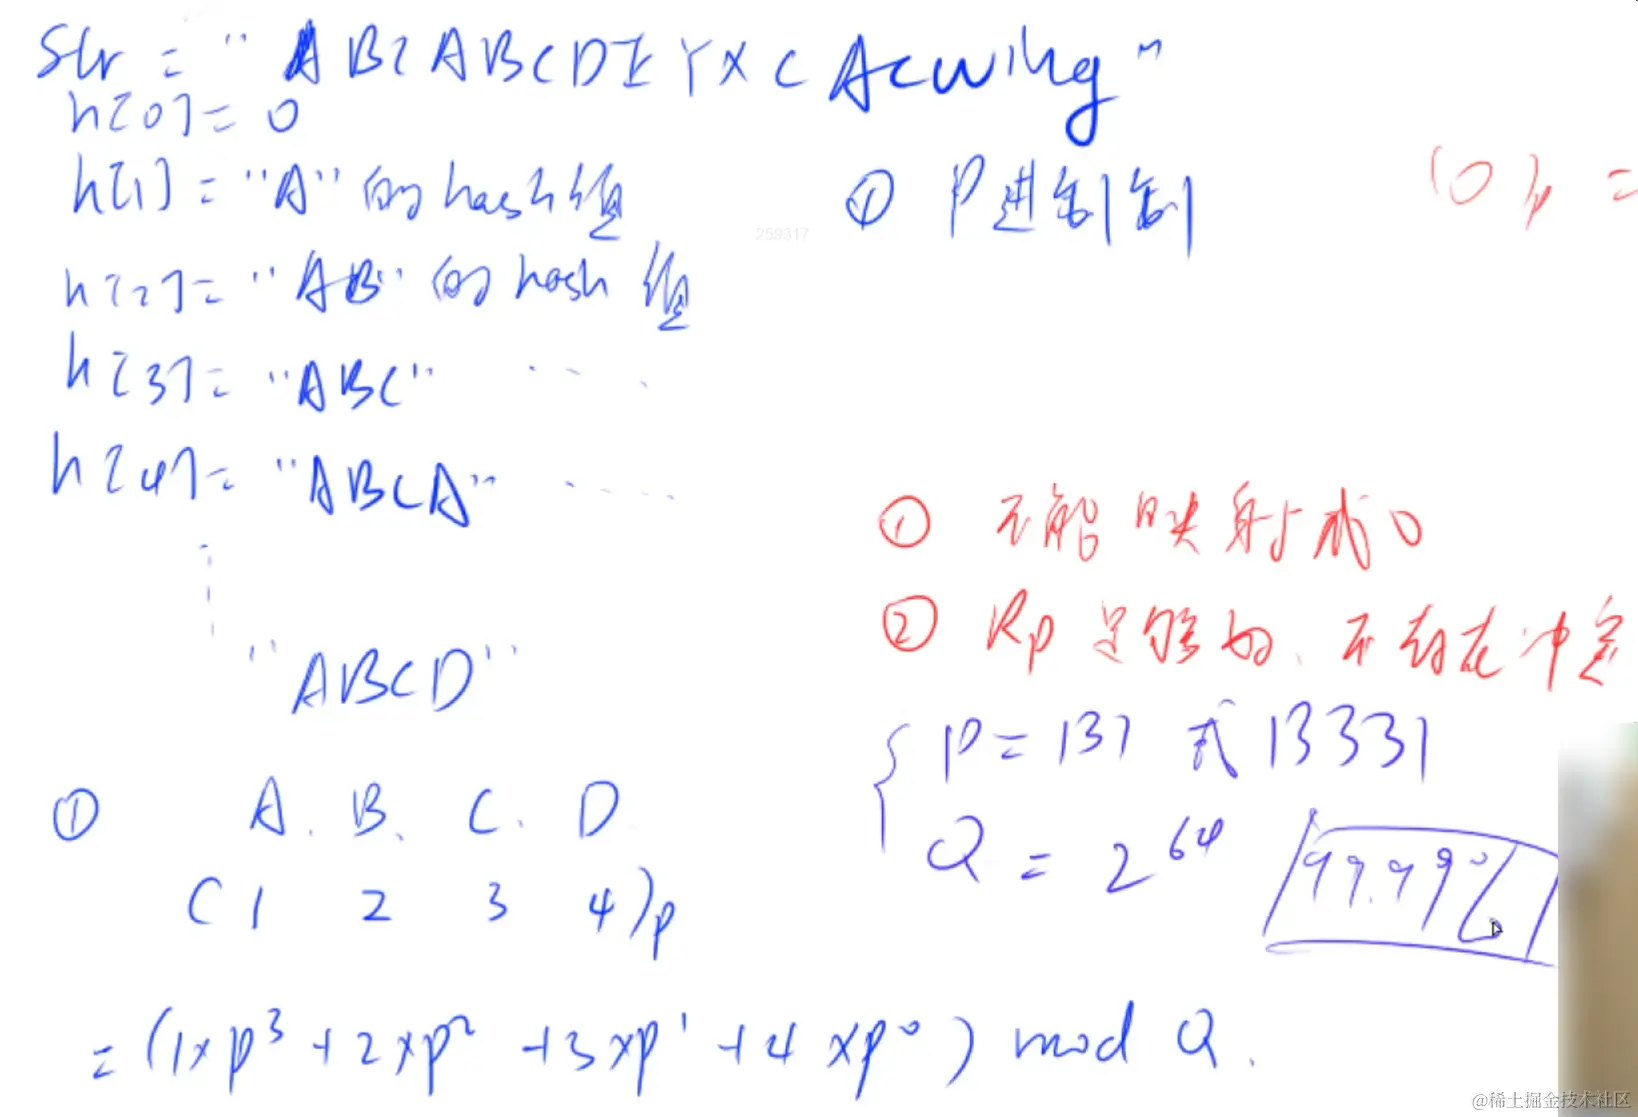 Str = "ABCABCDEYXCAcwing"
h[0] = 0
h[1] = "A"的hash值
① P进制制
(0)p =
259317
h[2] = "AB"的hash值
h[3] = "ABC" ....
h[4] = "ABCA" ....
① 不能映射成0
② Rp足够好、不存在冲突
"ABCD"
P = 131 或 13331
Q = 2^64
99.99%
① A. B. C. D.
(1 2 3 4)p
= (1×p^3 + 2×p^2 + 3×p^1 + 4×p^0) mod Q.
@稀土掘金技术社区